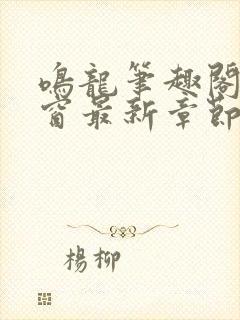 鳴龍筆趣閣
窗最新章節
楊柳